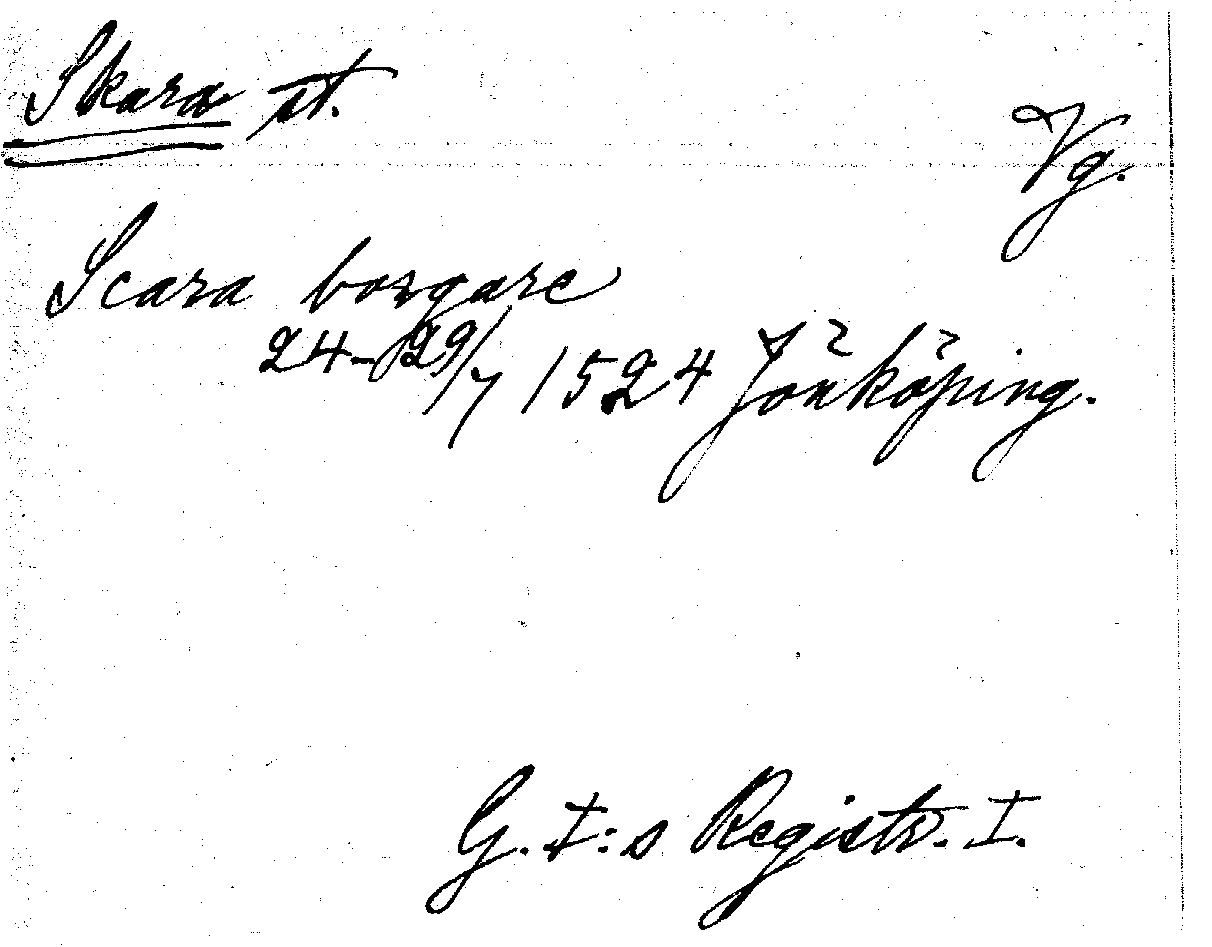 Skara st.
Vg.
Scara borgare
24-29/7 1524 Jönköping.
G. I:s Registr. I.